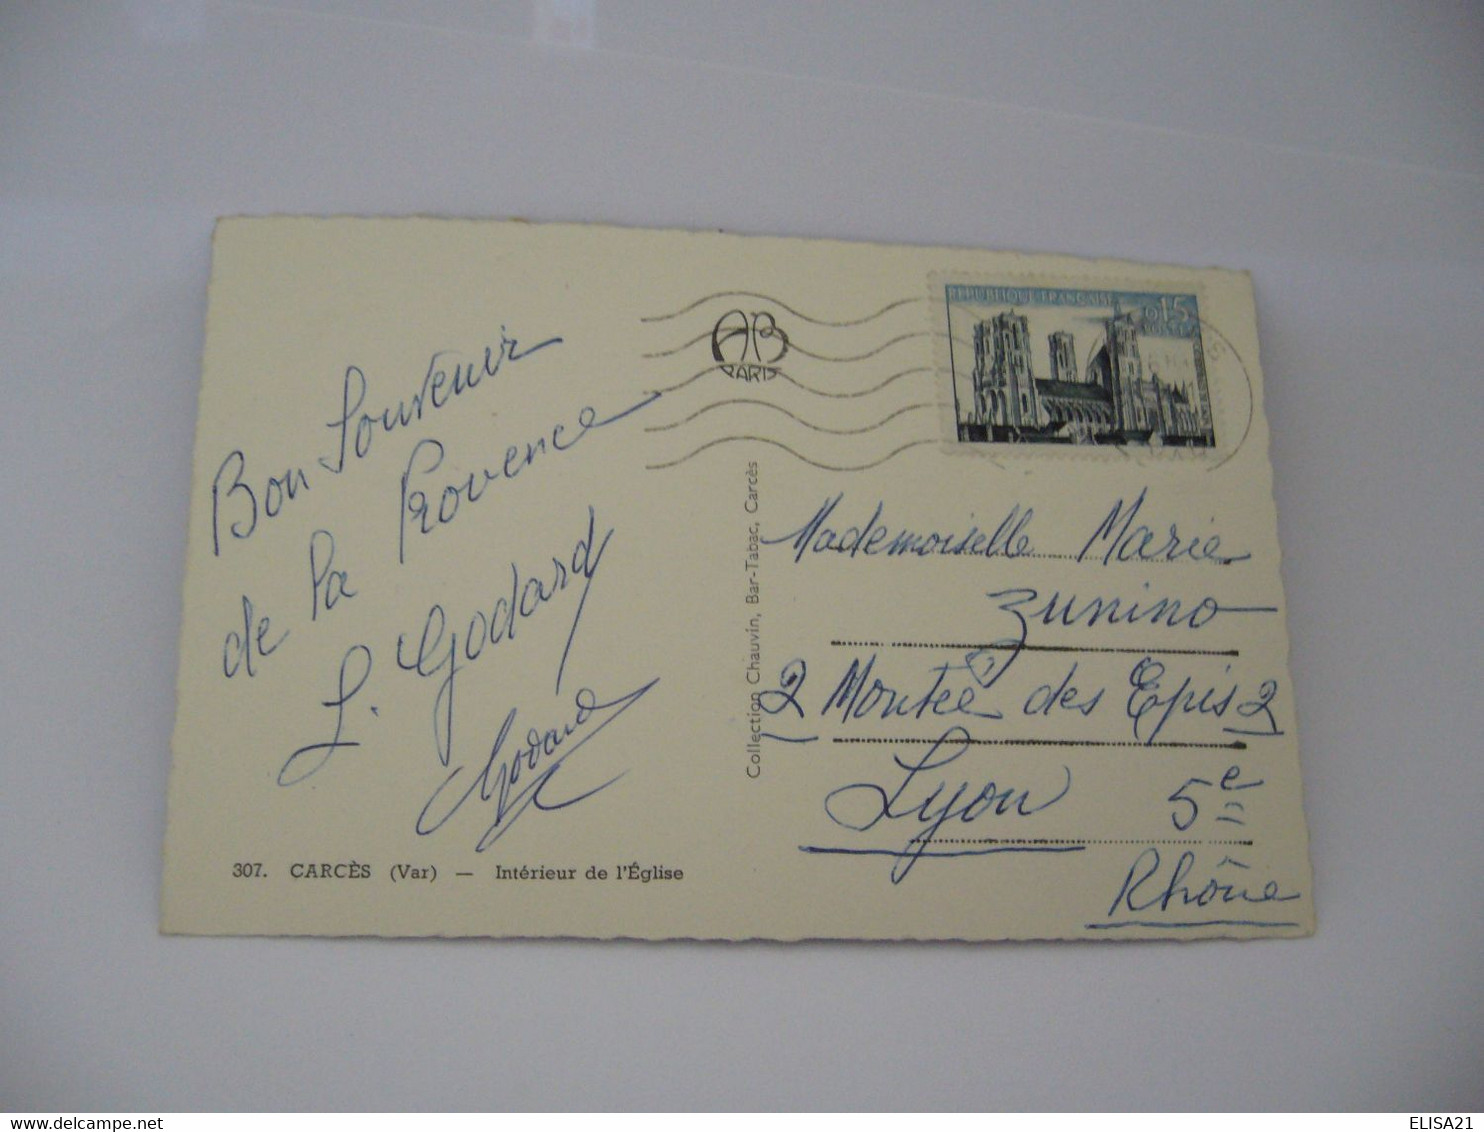 Bon Souvenir
de la Provence
L. Godard
Godard
307. CARCÈS (Var) — Intérieur de l'Église
AB
PARIS
Collection Chauvin, Bar-Tabac, Carcès
REPUBLIQUE FRANÇAISE
0,15
POSTES
Mademoiselle Marie
Zunino
2 Montée des Epis 2
Lyon 5e
Rhône
ELISA21